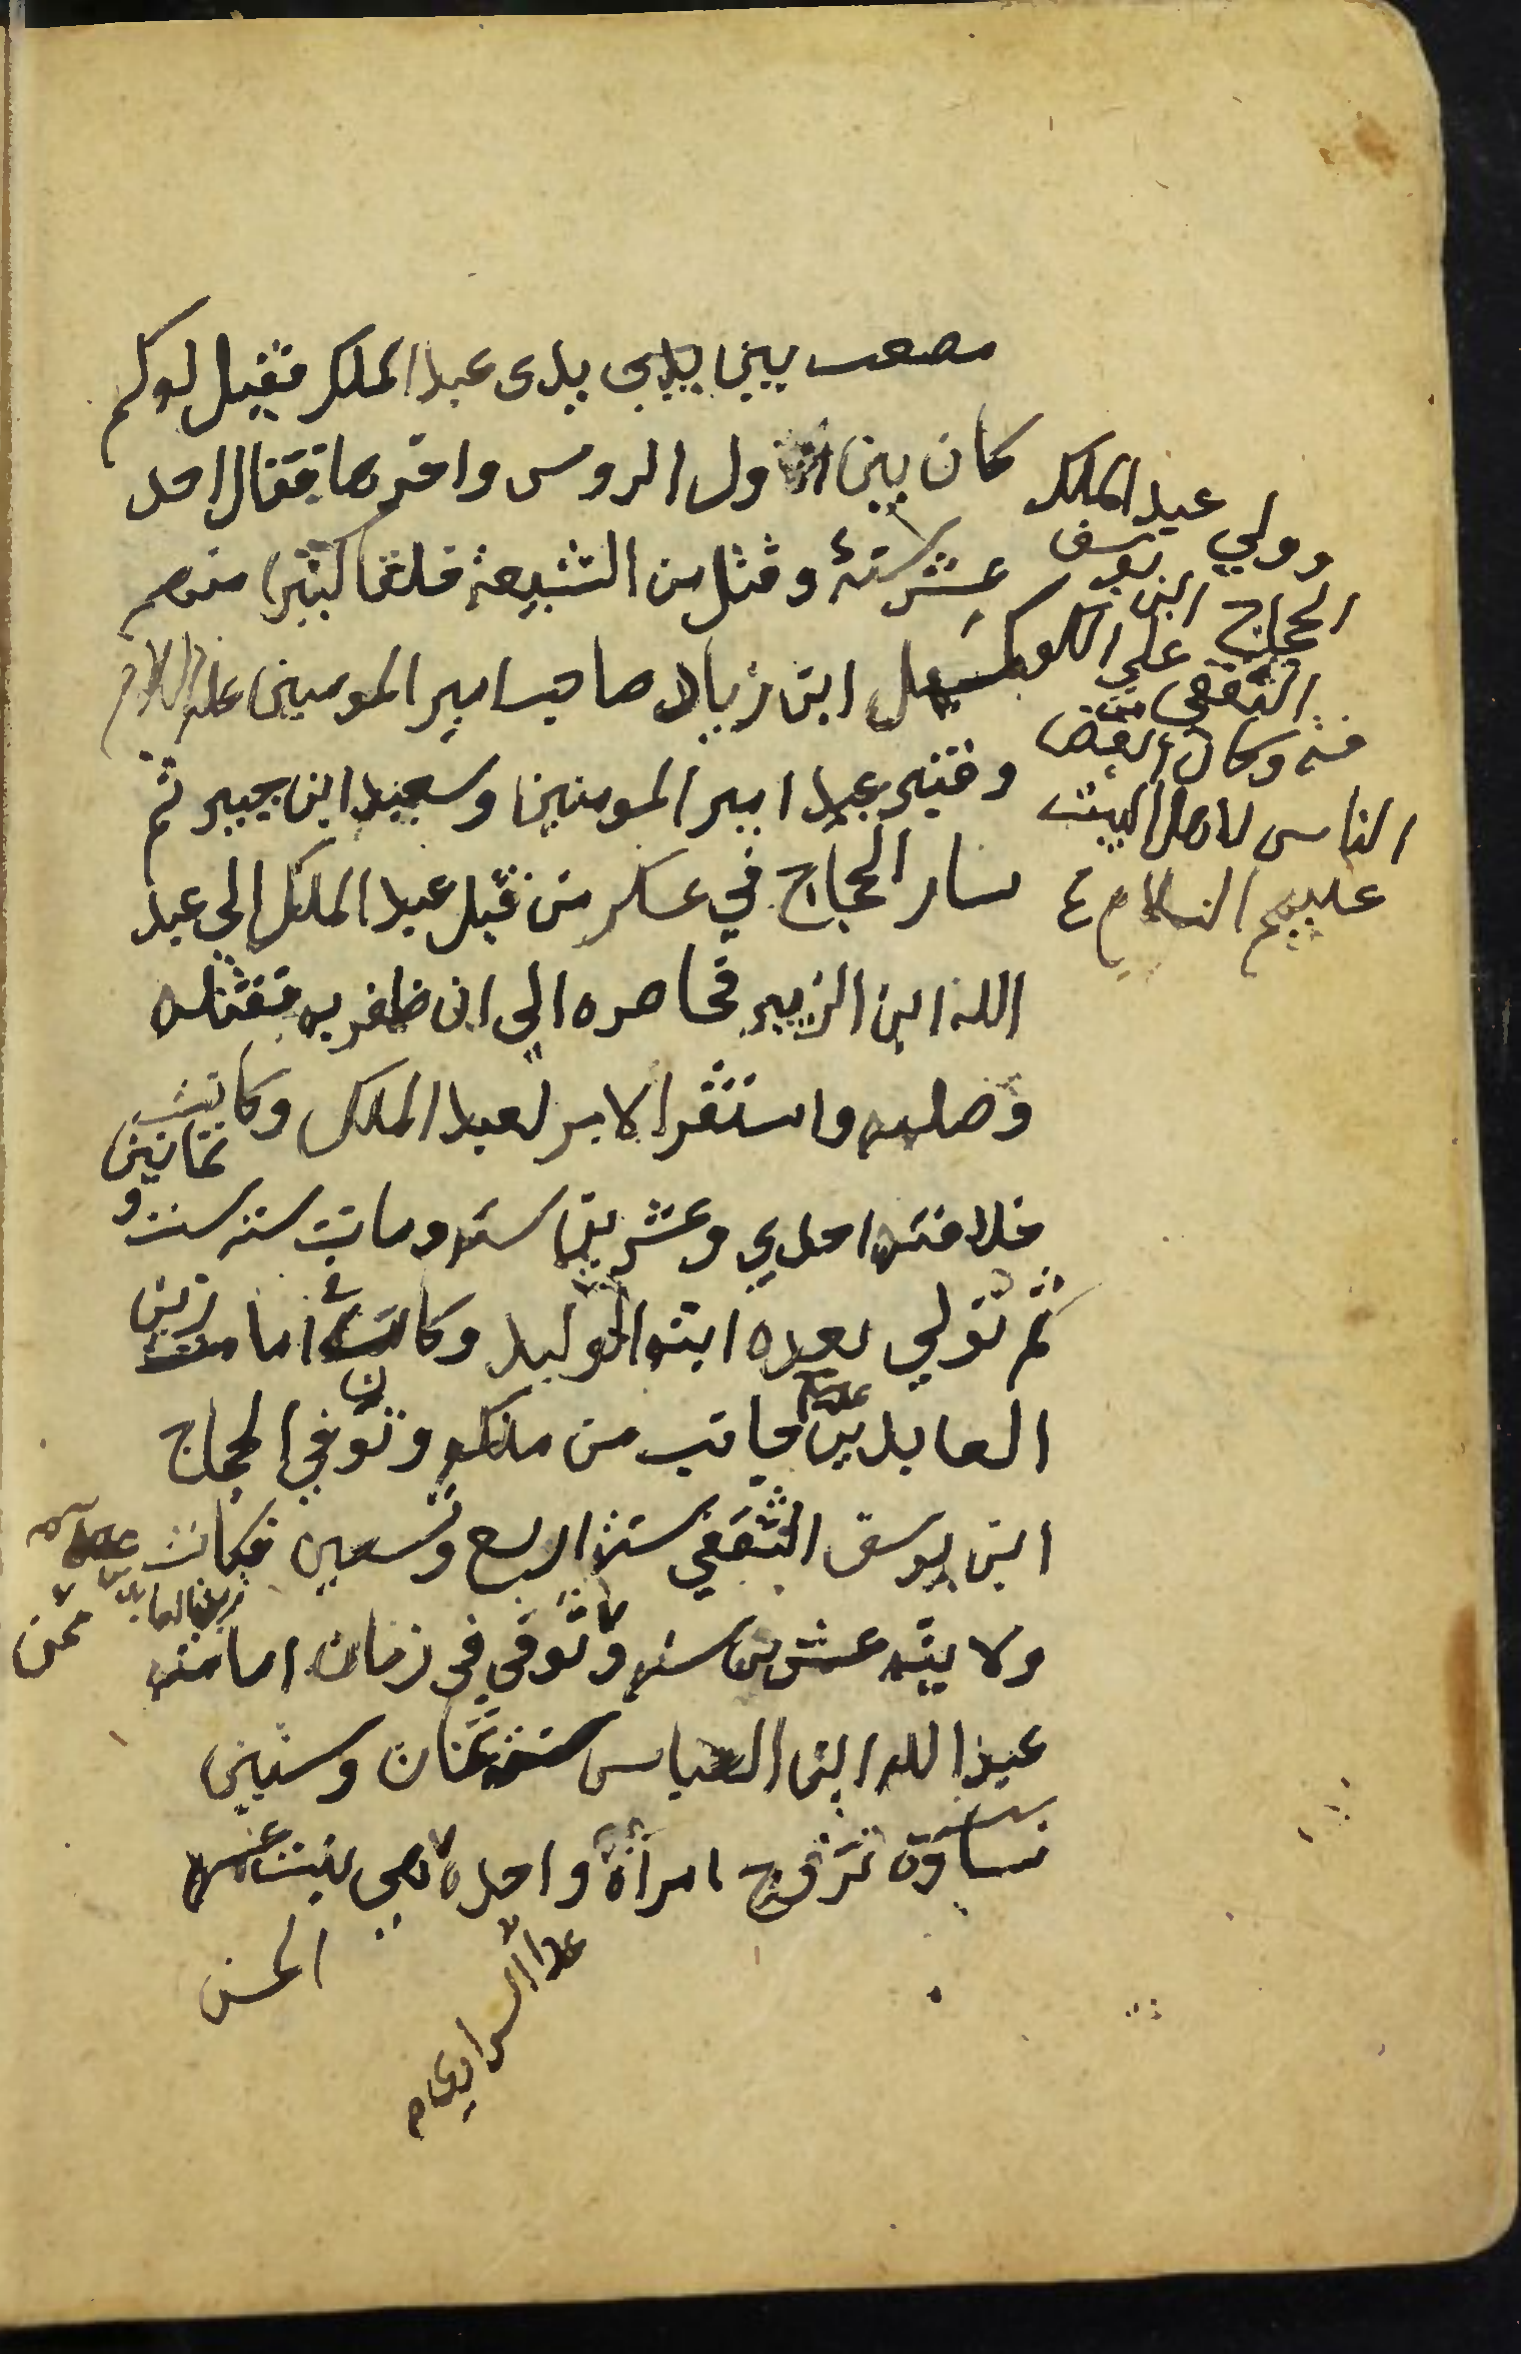 مصعب بين يدي عبد الملك فقيل لو كم
كان بين اول الروس واخرها فقال احد
عشر سنة وقتل من الشيعة خلقا كثيرا منهم
كميل ابن زياد صاحب امير المومنين عليه السلام
وقنبر عبد امير المومنين وسعيد ابن جبير ثم
سار الحجاج في عسكر من قبل عبد الملك الي عبد
الله ابن الزبير فحاصره الى ان ظفر به فقتله
وصلبه واستقر الامر لعبد الملك وكانت
خلافته احدي وعشرين سنة ومات سنة ست و
ثمانين
ثم تولي بعده ابنه الوليد وكان في امامة زين
العابدين جانب من ملكه وتوفي الحجاج
ابن يوسف الثقفي سنة اربع وتسعين فكانت
ولايته عشرين سنة وتوفي في زمان امامته
زين العابدين
ممن
عبد الله ابن العباس سنة ثمان وستين
نساؤه تزوج امراة واحدة هي بنت عمه
الحسن
وولي عبد الملك
الحجاج ابن يوسف
الثقفي على الكوفة
وكان من ابغض
الناس لاهل البيت
عليهم السلام